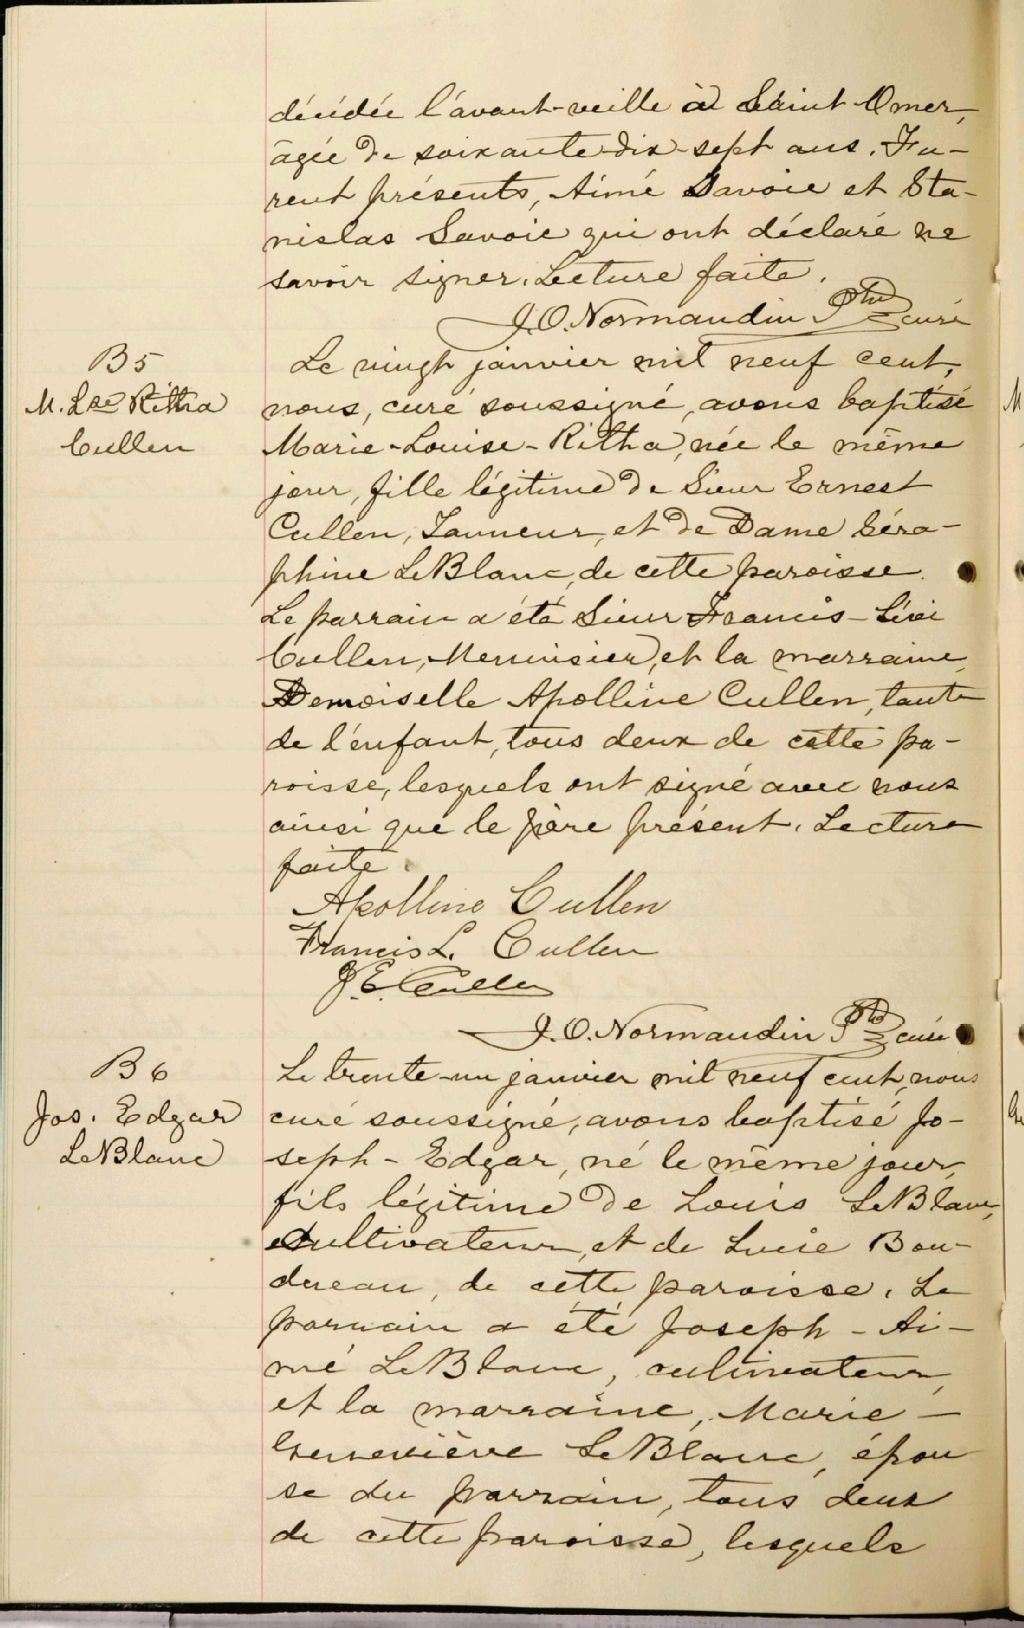 décédée l'avant-veille à Saint Omer,
âgée de soixante-dix-sept ans. Fu-
rent présents, Aimé Savoie et Sta-
nislas Savoie qui ont déclaré ne
savoir signer. Lecture faite.
J. O. Normandin Ptre curé
B 5
M. Lse Ritha
Cullen
Le vingt janvier mil neuf cent,
nous, curé soussigné, avons baptisé
Marie-Louise-Ritha, née le même
jour, fille légitime de Sieur Ernest
Cullen, Tanneur, et de Dame Séra-
phine LeBlanc, de cette paroisse.
Le parrain a été Sieur Francis-Lévi
Cullen, Menuisier, et la marraine,
Demoiselle Apolline Cullen, tante
de l'enfant, tous deux de cette pa-
roisse, lesquels ont signé avec nous
ainsi que le père présent. Lecture
faite.
Apolline Cullen
Francis L. Cullen
J. E. Cullen
J. O. Normandin Ptre curé
B 6
Jos. Edgar
LeBlanc
Le trente-un janvier mil neuf cent, nous
curé soussigné, avons baptisé Jo-
seph-Edgar, né le même jour,
fils légitime de Louis LeBlanc,
cultivateur, et de Lucie Bou-
dreau, de cette paroisse. Le
parrain a été Joseph-Ai-
mé LeBlanc, cultivateur,
et la marraine, Marie-
Geneviève LeBlanc, épou
se du parrain, tous deux
de cette paroisse, lesquels